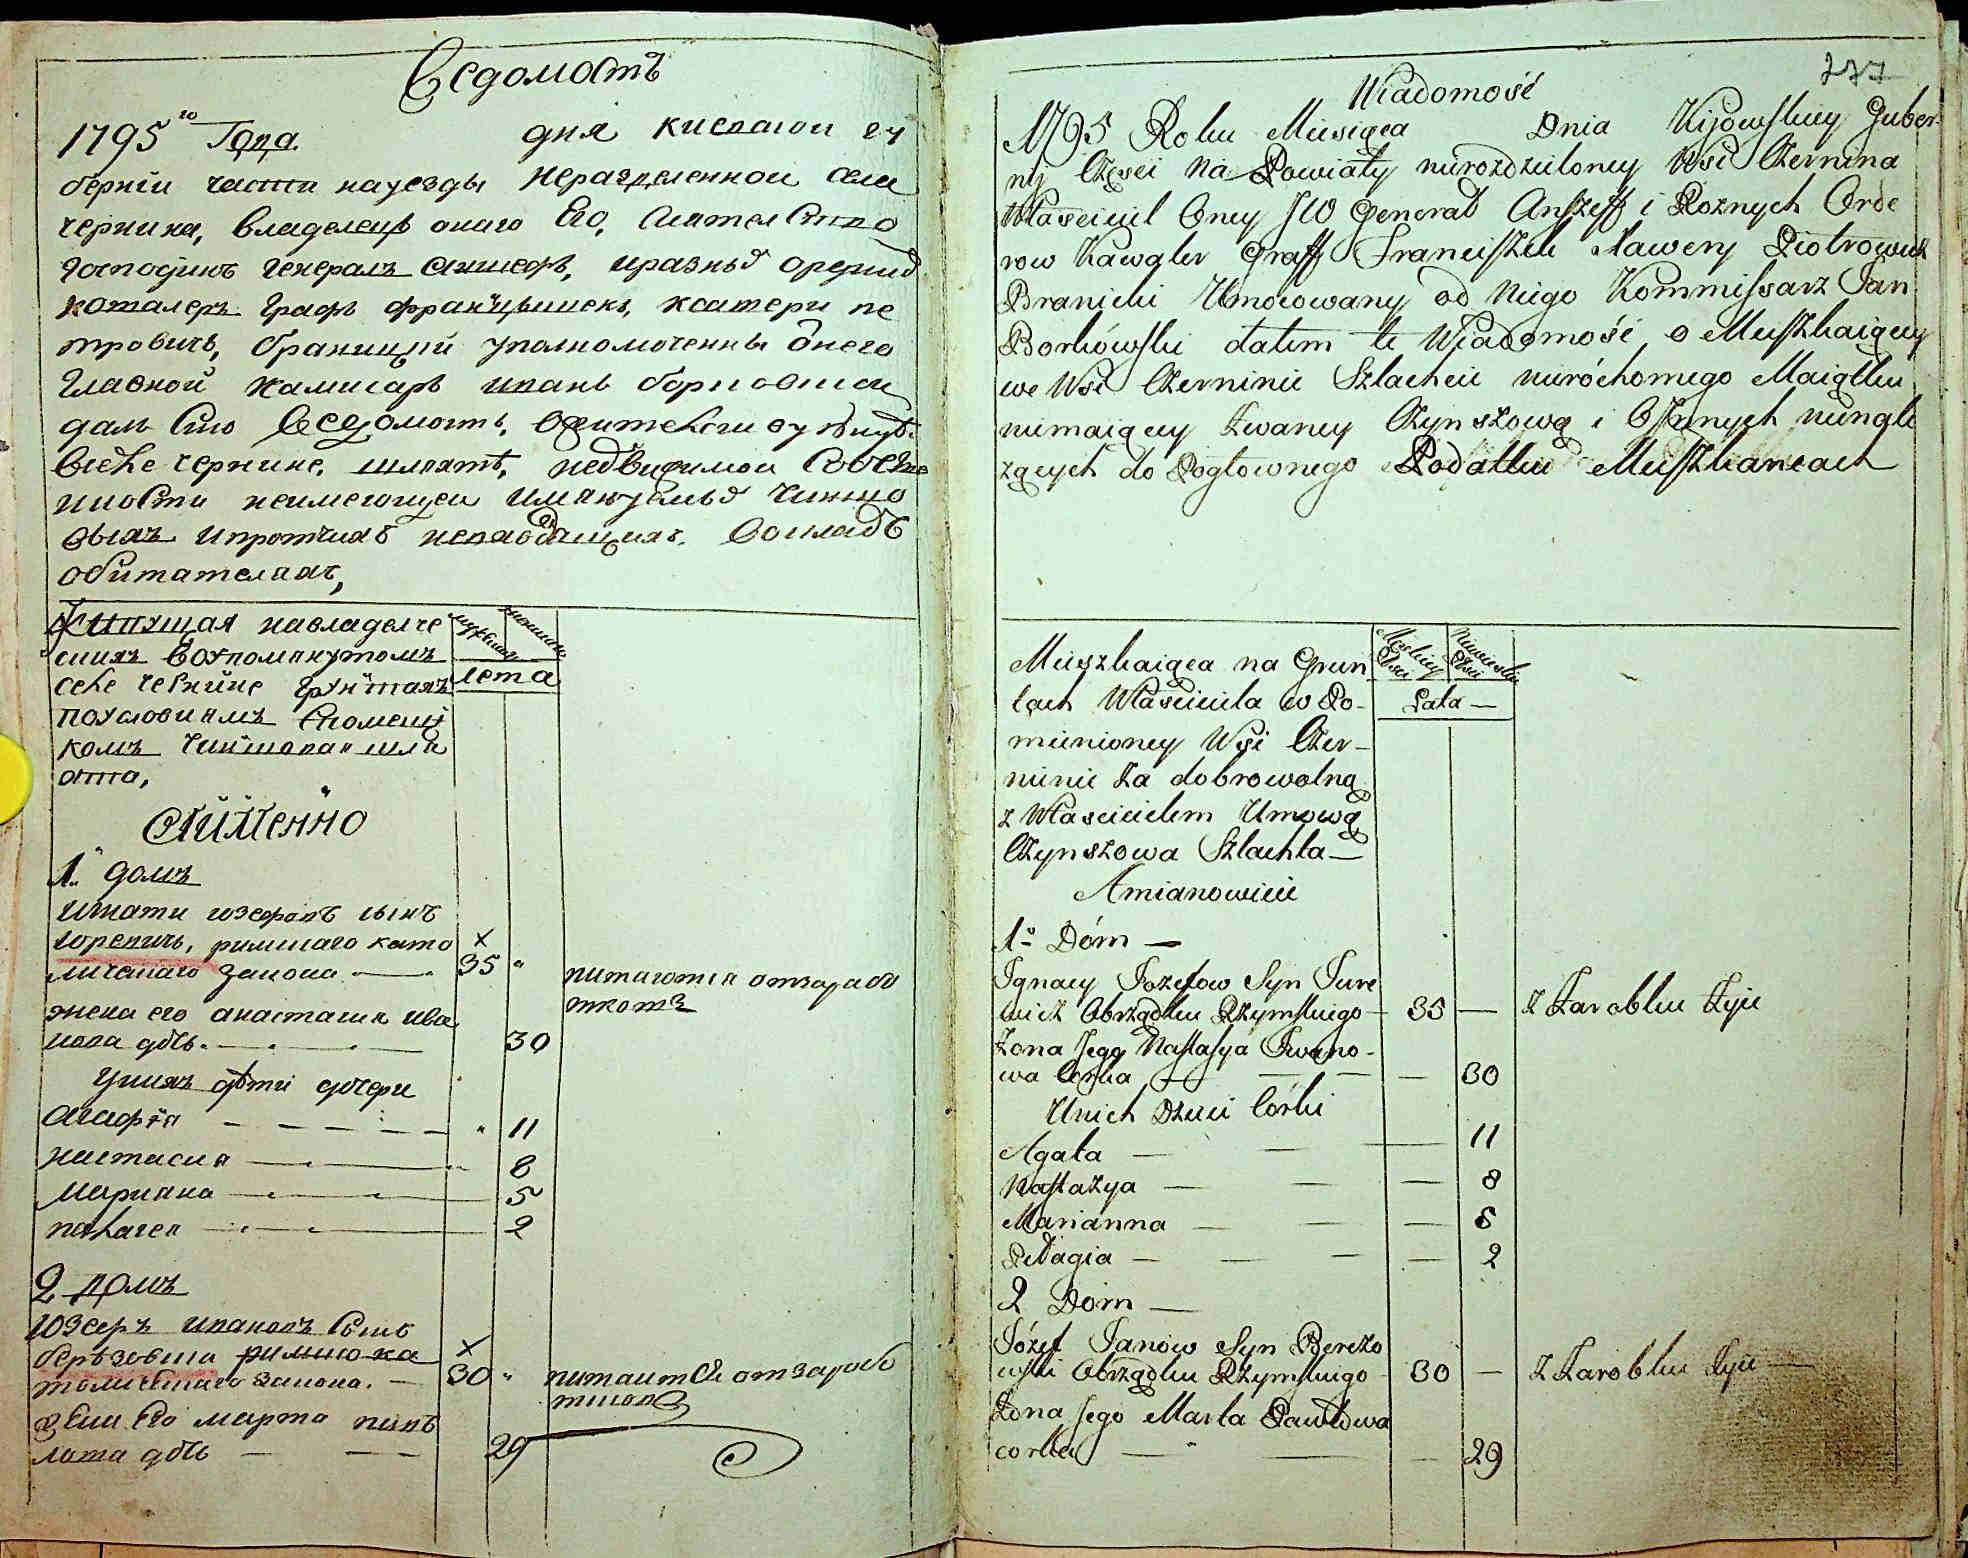 Ведомость
1795го Года дня киевской гу
бернии части науезды неразделенной села
чернина, владелецъ онаго Его, Сиятелство
господинъ генералъ аншефъ, иразныхъ орденовъ
коталеръ Графъ францышекъ, ксатери пе
тровичъ, браницкий уполномоченны отнего
Главной камисаръ иванъ борковски
далъ Сию Ведомость, обитающи
вселе чернине, шляхте, недвижимои Собстве
ности неимеющеи имянуемых чиншо
выхъ ипротчихъ неположеныхъ Вокладъ
обитателяхъ,
Живущая навладелче
скихъ Воупомянутомъ
селе чернине грунтахъ
поусловиямъ Спомещи
комъ чиншовая шля
хта,
мужеска женска
лета
Аимянно
1й домъ
игнати юзефовъ сынъ
юревичъ, римскаго като × 35
личаскаго закона питаются отзарабо
тковъ
жена его анастасия ива
нова дочь 30
унихъ дети дочери
агафия 11
настасия 8
марияна 5
палагея 2
2 домъ
юзефъ ивановъ Сынъ
березовски римско ка ×
толическаго закона. 30 питаится отзарабо
тковъ
жена Его марта павъ
лова дочь 29
277
Wiadomość
1795 Roku Miesiąca Dnia Kijowskiey Guber
nij Części Na Powiaty nierozdzieloney Wsi Czernina
Właściciel Oney JW General Anszeff i Roznych Orde
row Kawaler Graff Franciszek Xawery Piotrowicz
Branicki Umocowany od Niego Kommissarz Jan
Borkówski dałem te Wiadomość o Mieszkaiącey
we Wsi Czerninie Szlachcie nieróchomego Maiątku
niemaiącey Zwaney Czynszową i Jnnych nienale
żących do Pogłownego Podatku Mieszkańcach
Mieszkaiąca na Grun
tach Właściciela w Po-
mienioney Wsi Czer-
ninie Za dobrowolną
z Właścicielem Umową
Czynszowa Szlachta —
Męskiey Płci Niewieskiey Płci
Lata —
A mianowicie
1o Dóm —
Ignacy Jozefow Syn Jure
wicz Obrządku Rzymskiego — 35 — Z Zarobku Żyie
Żona Jego Nastasya Jwano-
wa Corka — 30
Unich Dzieci Córki
Agata — 11
Nastazya — 8
Marianna — 5
Pelagia — 2
2 Dom —
Józef Janów Syn Berezo
wski Obrządku Rzymskiego 30 — Z Zarobku Żyie —
Żona Jego Marta Pawłowa
corka — 29